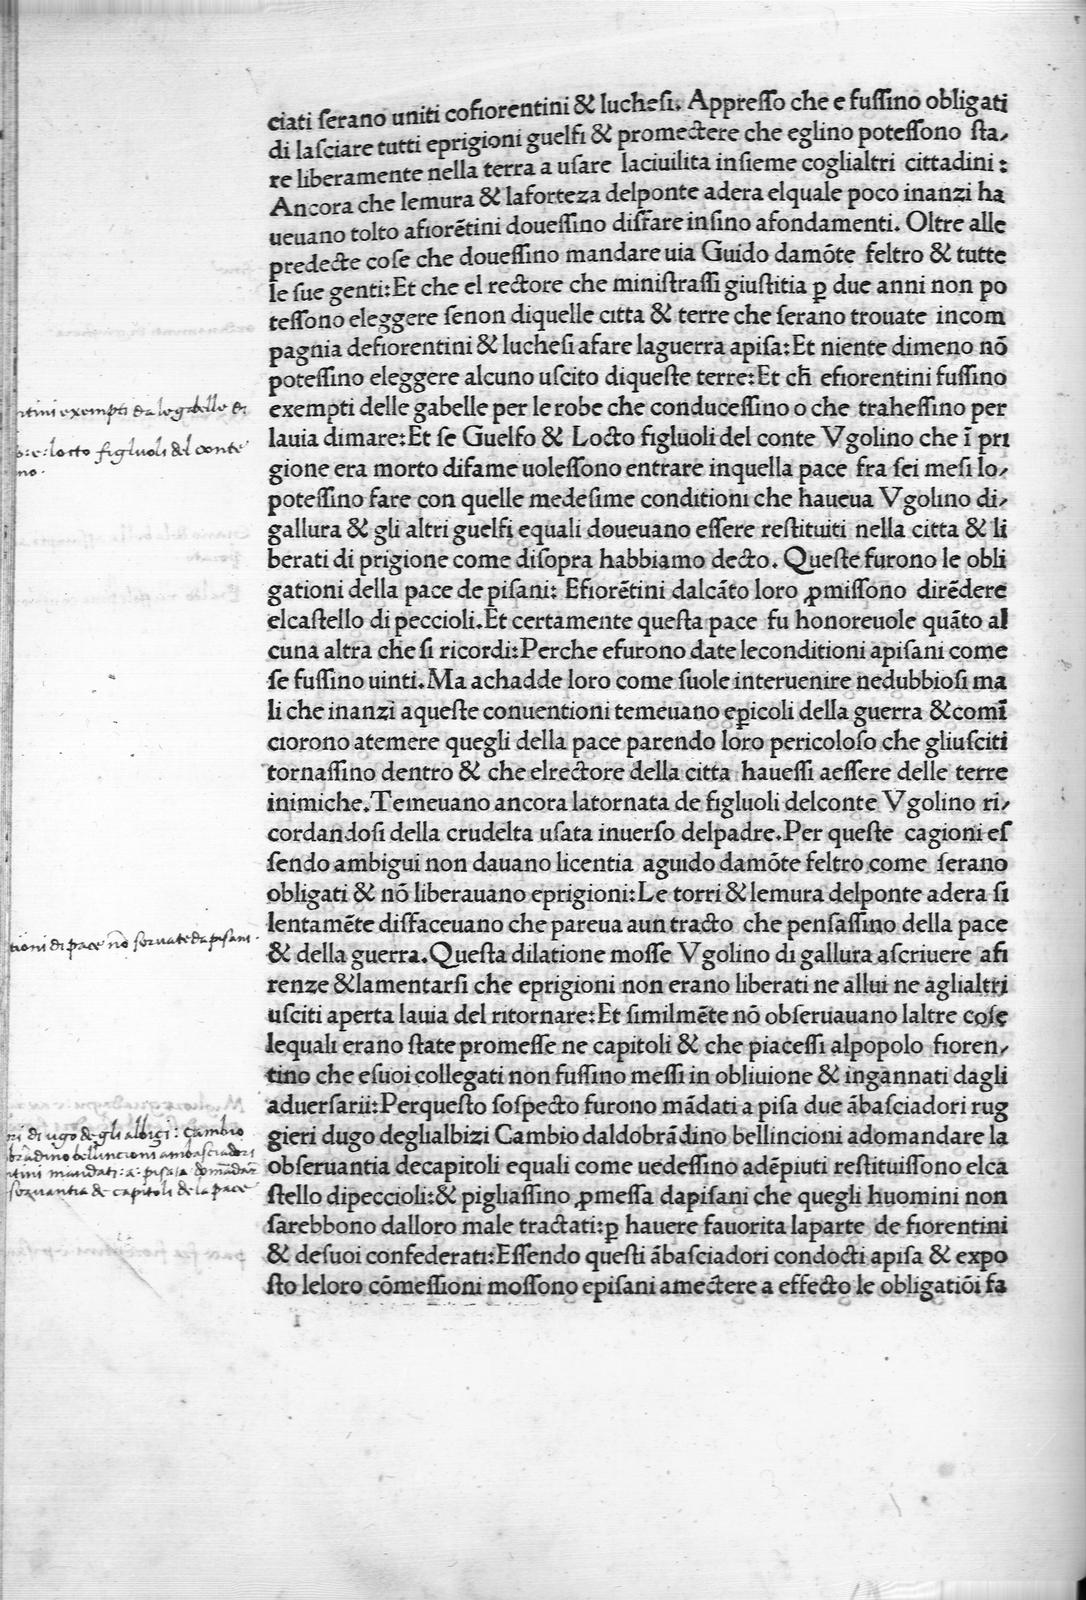 ciati ſerano uniti cofiorentini & lucheſi. Appreſſo che e fuſſino obligati
di laſciare tutti eprigioni guelfi & promectere che eglino poteſſono ſta/
re liberamente nella terra a uſare laciuilita inſieme coglialtri cittadini:
Ancora che lemura & laforteza delponte adera elquale poco inanzi ha
ueuano tolto afiorētini doueſſino diſfare inſino afondamenti. Oltre alle
predecte coſe che doueſſino mandare uia Guido damōte feltro & tutte
le ſue genti:Et che el rectore che miniſtraſſi giuſtitia ꝑ due anni non po
teſſono eleggere ſenon diquelle citta & terre che ſerano trouate incom
pagnia defiorentini & lucheſi afare laguerra apiſa:Et niente dimeno nō
poteſſino eleggere alcuno uſcito diqueſte terre:Et ch̄ efiorentini fuſſino
exempti delle gabelle per le robe che conduceſſino o che traheſſino per
lauia dimare:Et ſe Guelfo & Locto figluoli del conte Vgolino che ī pri
gione era morto difame uoleſſono entrare inquella pace fra ſei meſi lo/
poteſſino fare con quelle medeſime conditioni che haueua Vgolino di/
gallura & gli altri guelfi equali doueuano eſſere reſtituiti nella citta & li
berati di prigione come diſopra habbiamo decto. Queſte furono le obli
gationi della pace de piſani: Efiorētini dalcāto loro ꝓmiſſono dirēdere
elcaſtello di peccioli.Et certamente queſta pace fu honoreuole quāto al
cuna altra che ſi ricordi:Perche efurono date leconditioni apiſani come
ſe fuſſino uinti.Ma achadde loro come ſuole interuenire nedubbioſi ma
li che inanzi aqueſte conuentioni temeuano eꝑicoli della guerra &comī
ciorono atemere quegli della pace parendo loro pericoloſo che gliuſciti
tornaſſino dentro & che elrectore della citta haueſſi aeſſere delle terre
inimiche.Temeuano ancora latornata de figluoli delconte Vgolino ri/
cordandoſi della crudelta uſata inuerſo delpadre.Per queſte cagioni eſ
ſendo ambigui non dauano licentia aguido damōte feltro come ſerano
obligati & nō liberauano eprigioni:Le torri & lemura delponte adera ſi
lentamēte disfaceuano che pareua aun tracto che penſaſſino della pace
& della guerra.Queſta dilatione moſſe Vgolino di gallura aſcriuere afi
renze &lamentarſi che eprigioni non erano liberati ne allui ne aglialtri
uſciti aperta lauia del ritornare:Et ſimilmēte nō obſeruauano laltre coſe
lequali erano ſtate promeſſe ne capitoli & che piaceſſi alpopolo fioren/
tino che eſuoi collegati non fuſſino meſſi in obliuione & ingannati dagli
aduerſarii:Perqueſto ſoſpecto furono mādati a piſa due ābaſciadori rug
gieri dugo deglialbizi Cambio daldobrādino bellincioni adomandare la
obſeruantia decapitoli equali come uedeſſino adēpiuti reſtituiſſono elca
ſtello dipeccioli:& pigliaſſino ꝓmeſſa dapiſani che quegli huomini non
ſarebbono dalloro male tractati:ꝑ hauere fauorita laparte de fiorentini
& deſuoi confederati:Eſſendo queſti ābaſciadori condocti apiſa & expo
ſto leloro cōmeſſioni moſſono epiſani amectere a effecto le obligatiōi fa
ntini exempti da le gabelle di
o: e: locto figluoli del conte
no.
tioni di pace nō seruate da pisani.
ri di ugo de gli albizi: Cambio
bradino belincioni ambasciadori
ntini mandati: a: pisa: a domādar
seruantia de capitoli de la pace